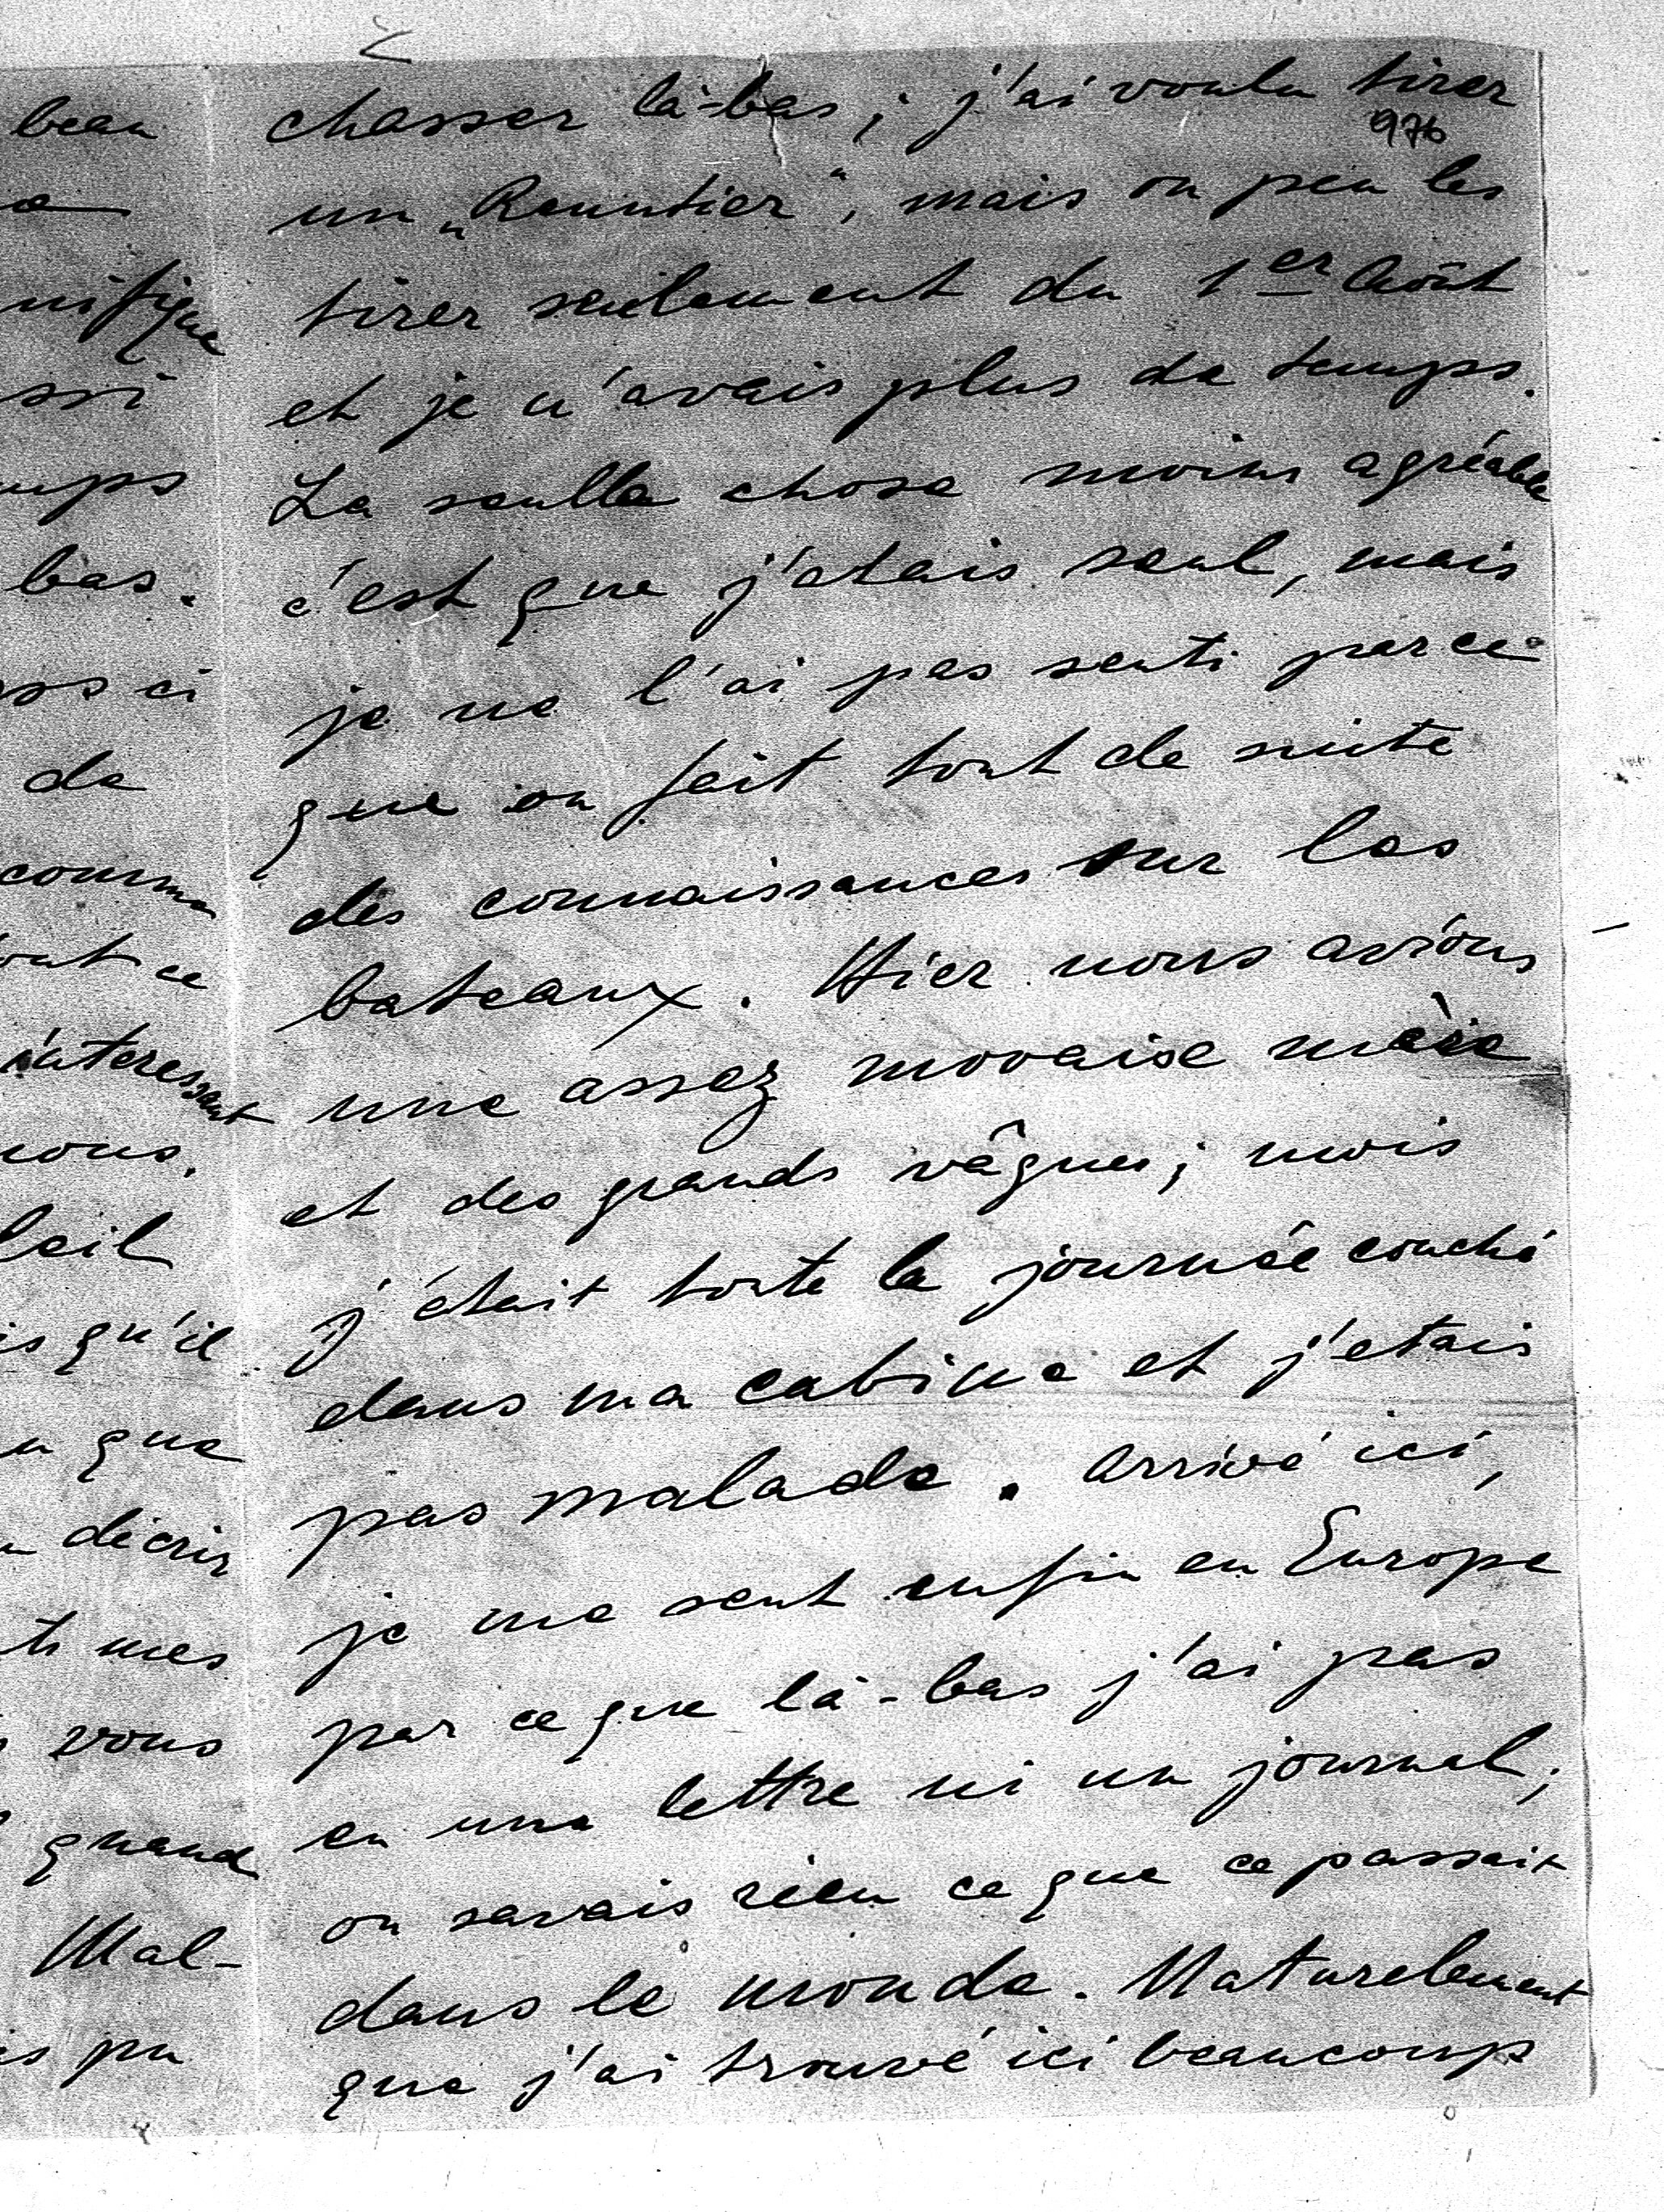 beau
nifique
ssi
mps
bas.
ps ci
de
comme
out ce
interessant
nous.
leil
is qu'il
u que
décrir
ti mes
vous
quand
Mal-
is pu
chasser là-bas ; j'ai voulu tirer
976
un „Renntier“, mais on peu les
tirer seulement du 1er Août
et je n'avais plus de temps.
La seulle chose moins agréable
c'est que j'etais seul, mais
je ne l'ai pas senti parce
que on fait tout de suite
des connaissances sur les
bateaux. Hier nous avions
une assez movaise mère
et des grands vâgues ; mais
j'était toute la journée couché
dans ma cabine et j'etais
pas malade. Arrivé ici,
je me sent enfin en Europe
par ce que là-bas j'ai pas
eu une lettre ni un journal ;
on savais rien ce que ce passait
dans le monde. Naturelement
que j'ai trouvé ici beaucoup